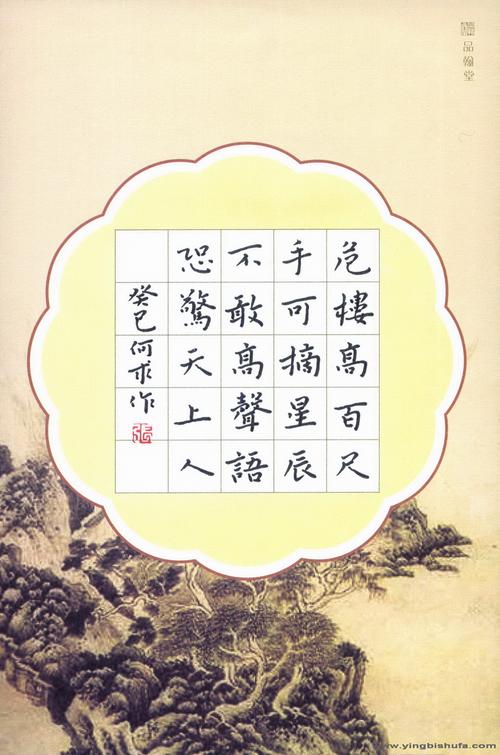 危樓高百尺
手可摘星辰
不敢高聲語
恐驚天上人
癸巳何求作
品翰堂
www.yingbishufa.com